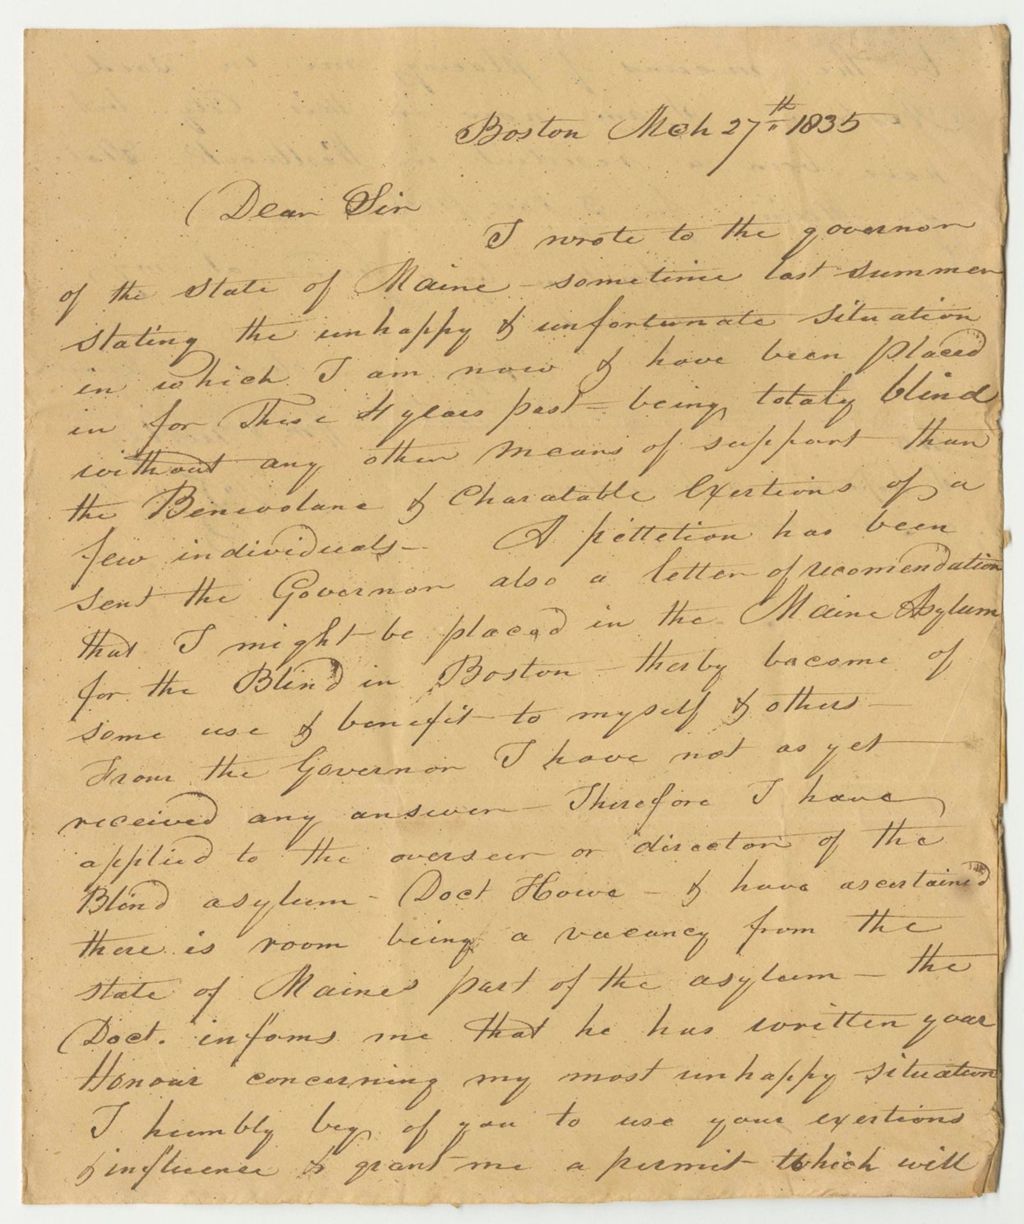 Boston Mch 27th 1835
Dear Sir
I wrote to the governor
of the state of Maine - sometime last summer
stating the unhappy & unfortunate situation
in which I am now & have been placed
in for these 4 years past - being totaly blind
without any other means of support than
the Benevolanc & Charatable Exertions of a
few individuals - A pettetion has been
sent the Governor also a letter of recomendation
that I might be placed in the Maine Asylum
for the Blind in Boston - therby become of
some use & benefit to myself & others -
From the Governor I have not as yet
received any answer - Therefore I have
applied to the overseer or director of the
Blind asylum - Doct Howe - & have ascertained
there is room being a vacancy from the
state of Maines part of the asylum - the
Doct. infoms me that he has written your
Honour concerning my most unhappy situation
I humbly beg of you to use your exertions
& influence & grant me a permit which will